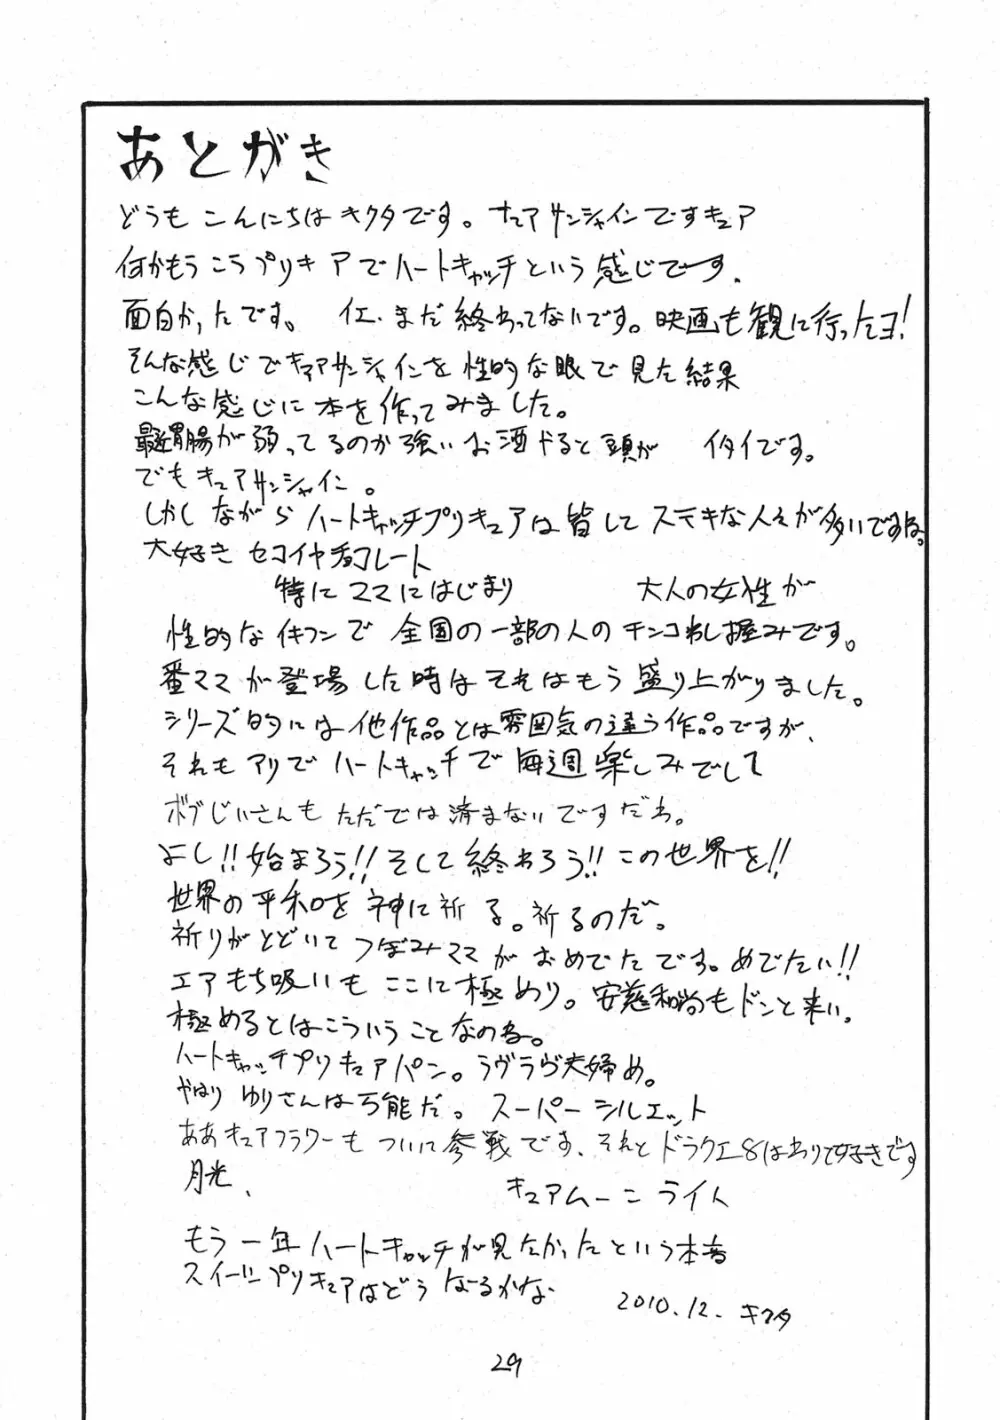 あとがき
どうもこんにちはキクタです。キュアサンシャインですキュア
何かもうこうプリキュアでハートキャッチという感じです。
面白かったです。イエ、まだ終わってないです。映画も観に行ったヨ!
そんな感じでキュアサンシャインを性的な眼で見た結果
こんな感じに本を作ってみました。
最近胃腸が弱ってるのか強いお酒やると頭が イタイです。
でもキュアサンシャイン。
しかしながらハートキャッチプリキュアは皆してステキな人々が多いですね。
大好きセコイヤチョコレート
特にママにはじまり 大人の女性が
性的なイキフンで全国の一部の人のチンコわし掴みです。
番ママが登場した時はそれはもう盛り上がりました。
シリーズ的には他作品とは雰囲気の違う作品ですが、
それもアリでハートキャッチで毎週楽しみでして
ボブじいさんもただでは済まないですだわ。
よし!!始まろう!!そして終わろう!!この世界を!!
世界の平和を神に祈る。祈るのだ。
祈りがとどいてつぼみママがおめでたです。めでたい!!
エアもち吸いもここに極めり。安慈和尚もドンと来い。
極めるとはこういうことなのね。
ハートキャッチプリキュアパン。ラヴラヴ夫婦め。
やはりゆりさんは万能だ。スーパーシルエット
ああキュアフラワーもついに参戦です、それとドラクエ8はわりと好きです
月光、 キュアムーンライト
もう一年ハートキャッチが見たかったという本音
スイーツプリキュアはどうなるかな
2010.12. キクタ
29